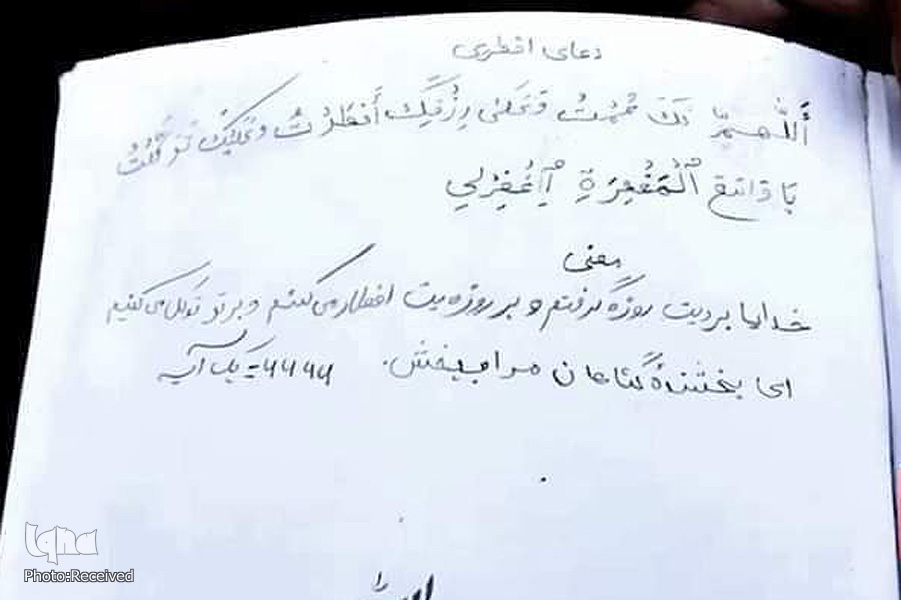 دعای افطری
أَللَّهمِّ لَکَ صُمْتُ وَعَلیٰ رِزْقِکَ أَفْطَرْتُ وَعَلَیْکَ تَوَکَّلْتُ
یَا وَاسِعَ ٱلْمَغْفِرَةِ ٱِغْفِرْلِي
معنی
خدایا بردیت روزه گرفتم و بر روزه یت افطار می کنم و بر تو توکل می کنیم
ای بخشندهٔ گناهان مرا ببخش. ۶۶۶۶ = یک آیه
iqna
Photo:Received